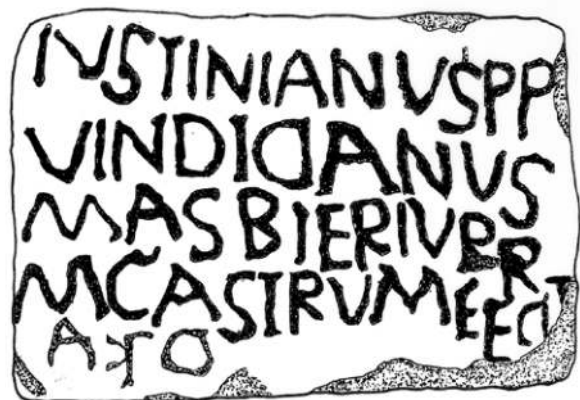 IVSTINIANVSPP
VINDICIANVS
MASBIERIVPR
MCASTRVMFECIT